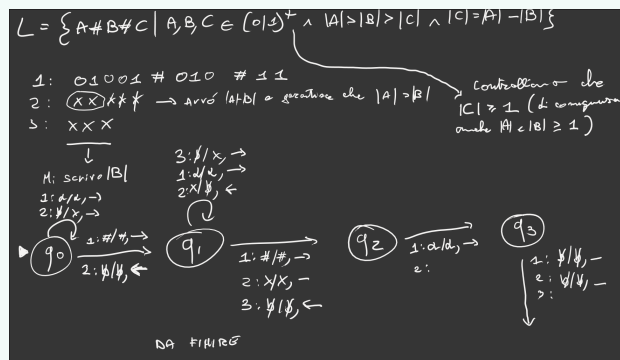 L = { A#B#C | A,B,C ∈ (0|1)⁺ ∧ |A|>|B|>|C| ∧ |C|=|A|-|B| }
1: 01001 # 010 # 11
2: xx ɃɃɃ → Avrò |A|-|B| e che |A|>|B|
3: xxx
controlliamo che
|C| ≥ 1 (di conseguenza
anche |A| e |B| ≥ 1)
Mi scrivo |B|
1: α/α, →
2: Ƀ/x, →
3: Ƀ/x, →
1: α/α, →
2: x/Ƀ, ←
q0
1: #/#, →
2: Ƀ/Ƀ, ←
q1
1: #/#, →
2: x/x, –
3: Ƀ/Ƀ, ←
q2
1: α/α, →
2:
q3
1: Ƀ/Ƀ, –
2: Ƀ/Ƀ, –
3:
DA FINIRE